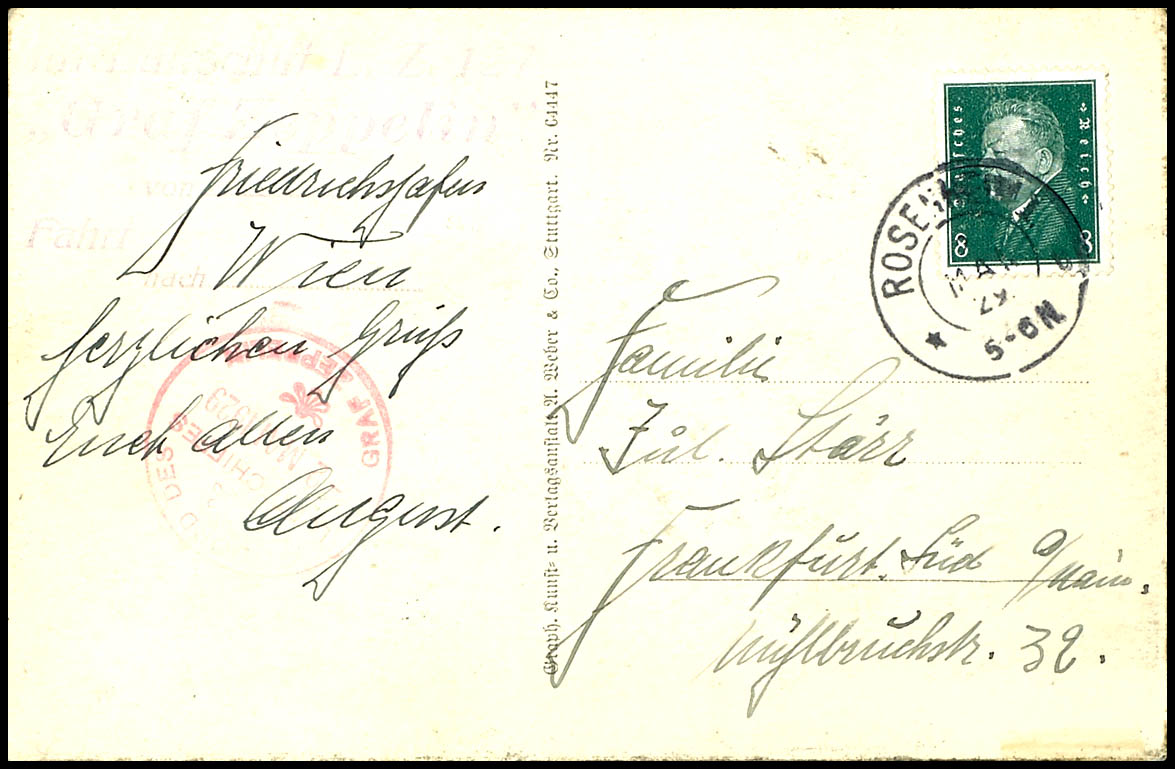 Luftschiff L. Z. 127
„Graf Zeppelin”
von
Fahrt
nach
Friedrichshafen
Wien
herzlichen Gruß
Euch allen
August.
DES
SCHIFFES
GRAF ZEPPELIN
MAI 1929
Graph. Kunst= u. Verlagsanstalt A. Weber & Co., Stuttgart. Nr. C4447
Deutsches
Reich
8
8
ROSENHEIM
MAI
29
5-6N
Familie
Jul. Stärr
Frankfurt. Süd a/Main.
Mühlbruchstr. 32.